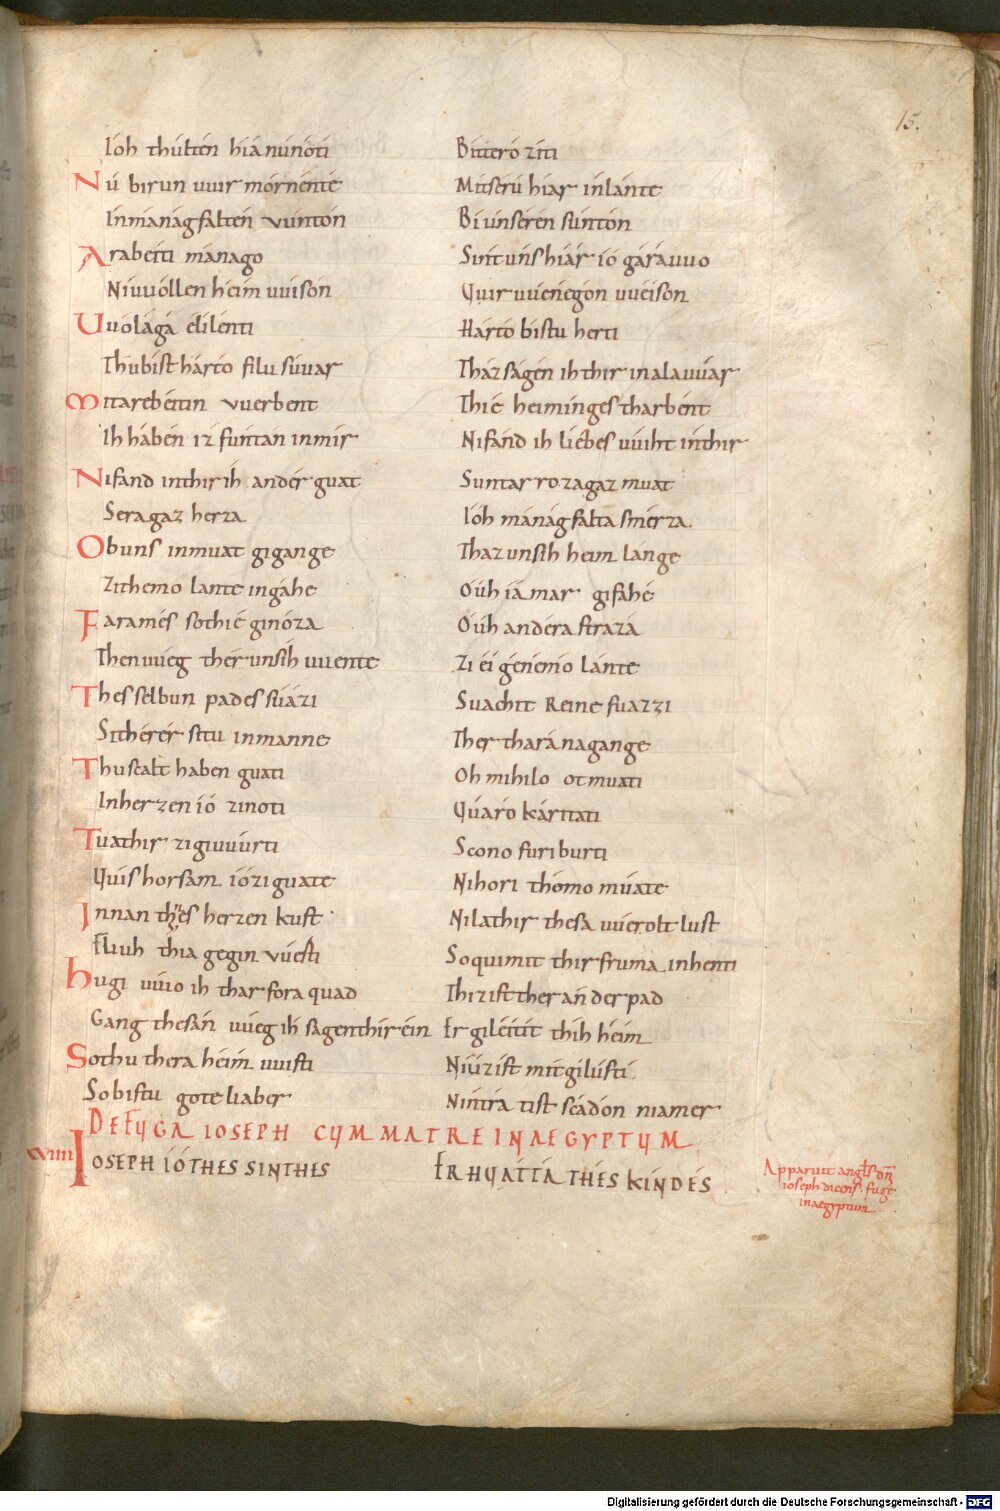 15.
Ióh thúlten híanúnóti Bíttero zíti
Nú birun uuir mórnénte Mítserú híar inlánte
Inmánágfalten vúntón Bi únserén súntón
Arabeiti mánago Sínt úns hiár ió gárauuo
Niuuóllen héim uuisón Uuir uuénegon uuéison
Uuólágá élilénti Hárto bistu herti
Thúbist hárto filu súuar Tház ságén ih thir in alauuár
Mitarebéitin vuerbent Thié heiminges tharbént
Ih hábén iz funtan in mir Nifánd ih liébes uuiht inthir
Nifand inthir ih ander guat Suntar rozagaz muat
Seragaz herza Ióh mánágfalta smérza
Obuns in muat gigange Thaz unsih heim lánge
Zithemo lante ingáhe Oúh iámar gifáhé
Faramés sothié ginóza Oúh andera straza
Then uueg thér unsih uuente Zi éigenemo lánte
Thes selbun pades suázi Suachit Reine fuazzi
Sithérér situ in manne Ther thará nagange
Thu scalt haben guati Oh mihilo otmuati
Inherzen ió zinoti Uuáro káritati
Tuathir zi giuuúrti Scono furiburti
Uuis horsam ióziguate Nihori thémo múate
Innan thes herzen kust Nilathir thesa uuerolt lust
Fliuh thia gegin vuésti So quimit thir fruma inhenti
hugi uuio ih thar fora quad Thiz ist ther ander pad
Gang thesán uueg ih sagen thir éin Er giléitit thih héim
Sothu thera héimuuisti Niúzist mit gilústi
So bistu gote liaber Nintrátist scádon niamer
DE FUGA IOSEPH CUM MATRE IN AEGYPTUM
xviiii IOSEPH IÓ THES SINTHES ER HUATTA THES KINDES
Apparuit angls dni
ioseph dicens. fuge
in aegyptum
Digitalisierung gefördert durch die Deutsche Forschungsgemeinschaft - DFG